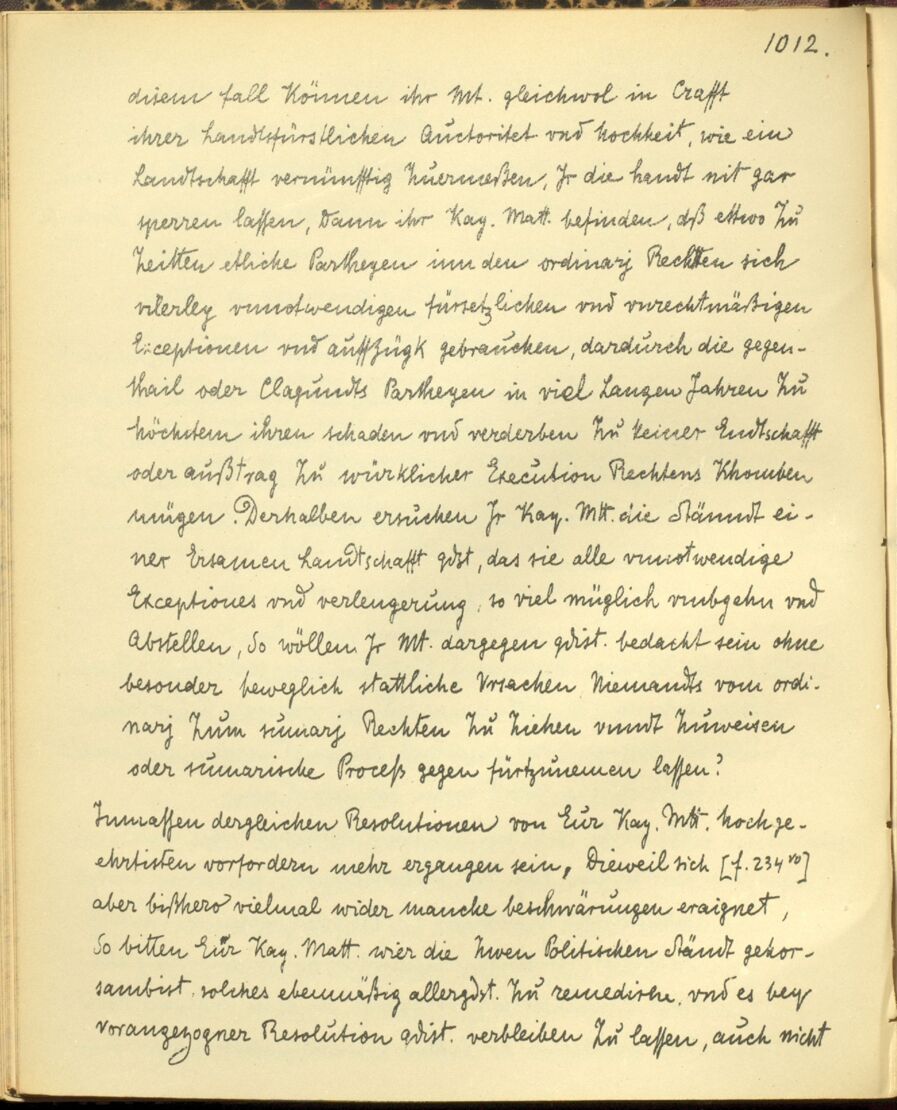 1012.
disem fall Können ihr Mt. gleichwol in Crafft
ihrer Landtsfürstlichen Auctoritet vnd hochheit, wie ein
Landtschafft vernünfftig Zuermeßen, Jr die handt nit gar
sperren lassen, Dann ihr Kay. Matt. befinden, dß ettwo Zu
Zeitten etliche Partheyen inn den ordinarj Rechten sich
vilerley vnnotwendigen fürsetzlichen vnd vnrechtmäßigen
Exceptionen vnd auffZügk gebrauchen, dardurch die gegen-
thail oder Clagundts Partheyen in viel Langen Jahren Zu
höchstem ihren schaden vnd verderben Zu keiner Endtschafft
oder außtrag Zu würklicher Execution Rechtens Khomben
mügen. Derhalben ersuchen Jr Kay. Mtt. die Stänndt ei-
ner Ersamen Landtschafft gdst, das sie alle vnnotwendige
Exceptiones vnd verlengerung, so viel müglich vmbgehn vnd
Abstellen, So wöllen Jr Mt. dargegen gdist. bedacht sein ohne
besonder beweglich stattliche Vrsachen Niemandts vom ordi-
narj Zum sumarj Rechten Zu Ziehen vnndt Zuweisen
oder sumarische Proceß gegen fürtzunemen lassen?
Inmassen dergleichen Resolutionen von Eur Kay. Mtt. hochge-
ehrtisten vorfordern mehr ergangen sein, Dieweil sich [f. 234 vo]
aber bißhero vielmal wider manche beschwärungen eraignet,
So bitten Eur Kay. Matt. wier die Zwen Politischen Ständt gehor-
sambist, solches ebenmäßig allergdst. Zu remedirhn, vnd es bey
vorangezogner Resolution gdist. verbleiben Zu lassen, auch nicht